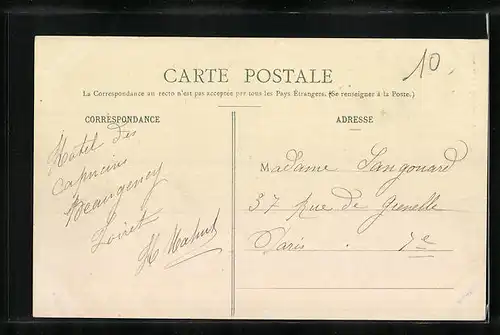 10
CARTE POSTALE
La Correspondance au recto n'est pas acceptée par tous les Pays Étrangers. (Se renseigner à la Poste.)
CORRESPONDANCE
Hotel des
Capucins
Beaugency
Loiret
ADRESSE
Madame Langouard
37 rue de Grenelle
Paris . 7e